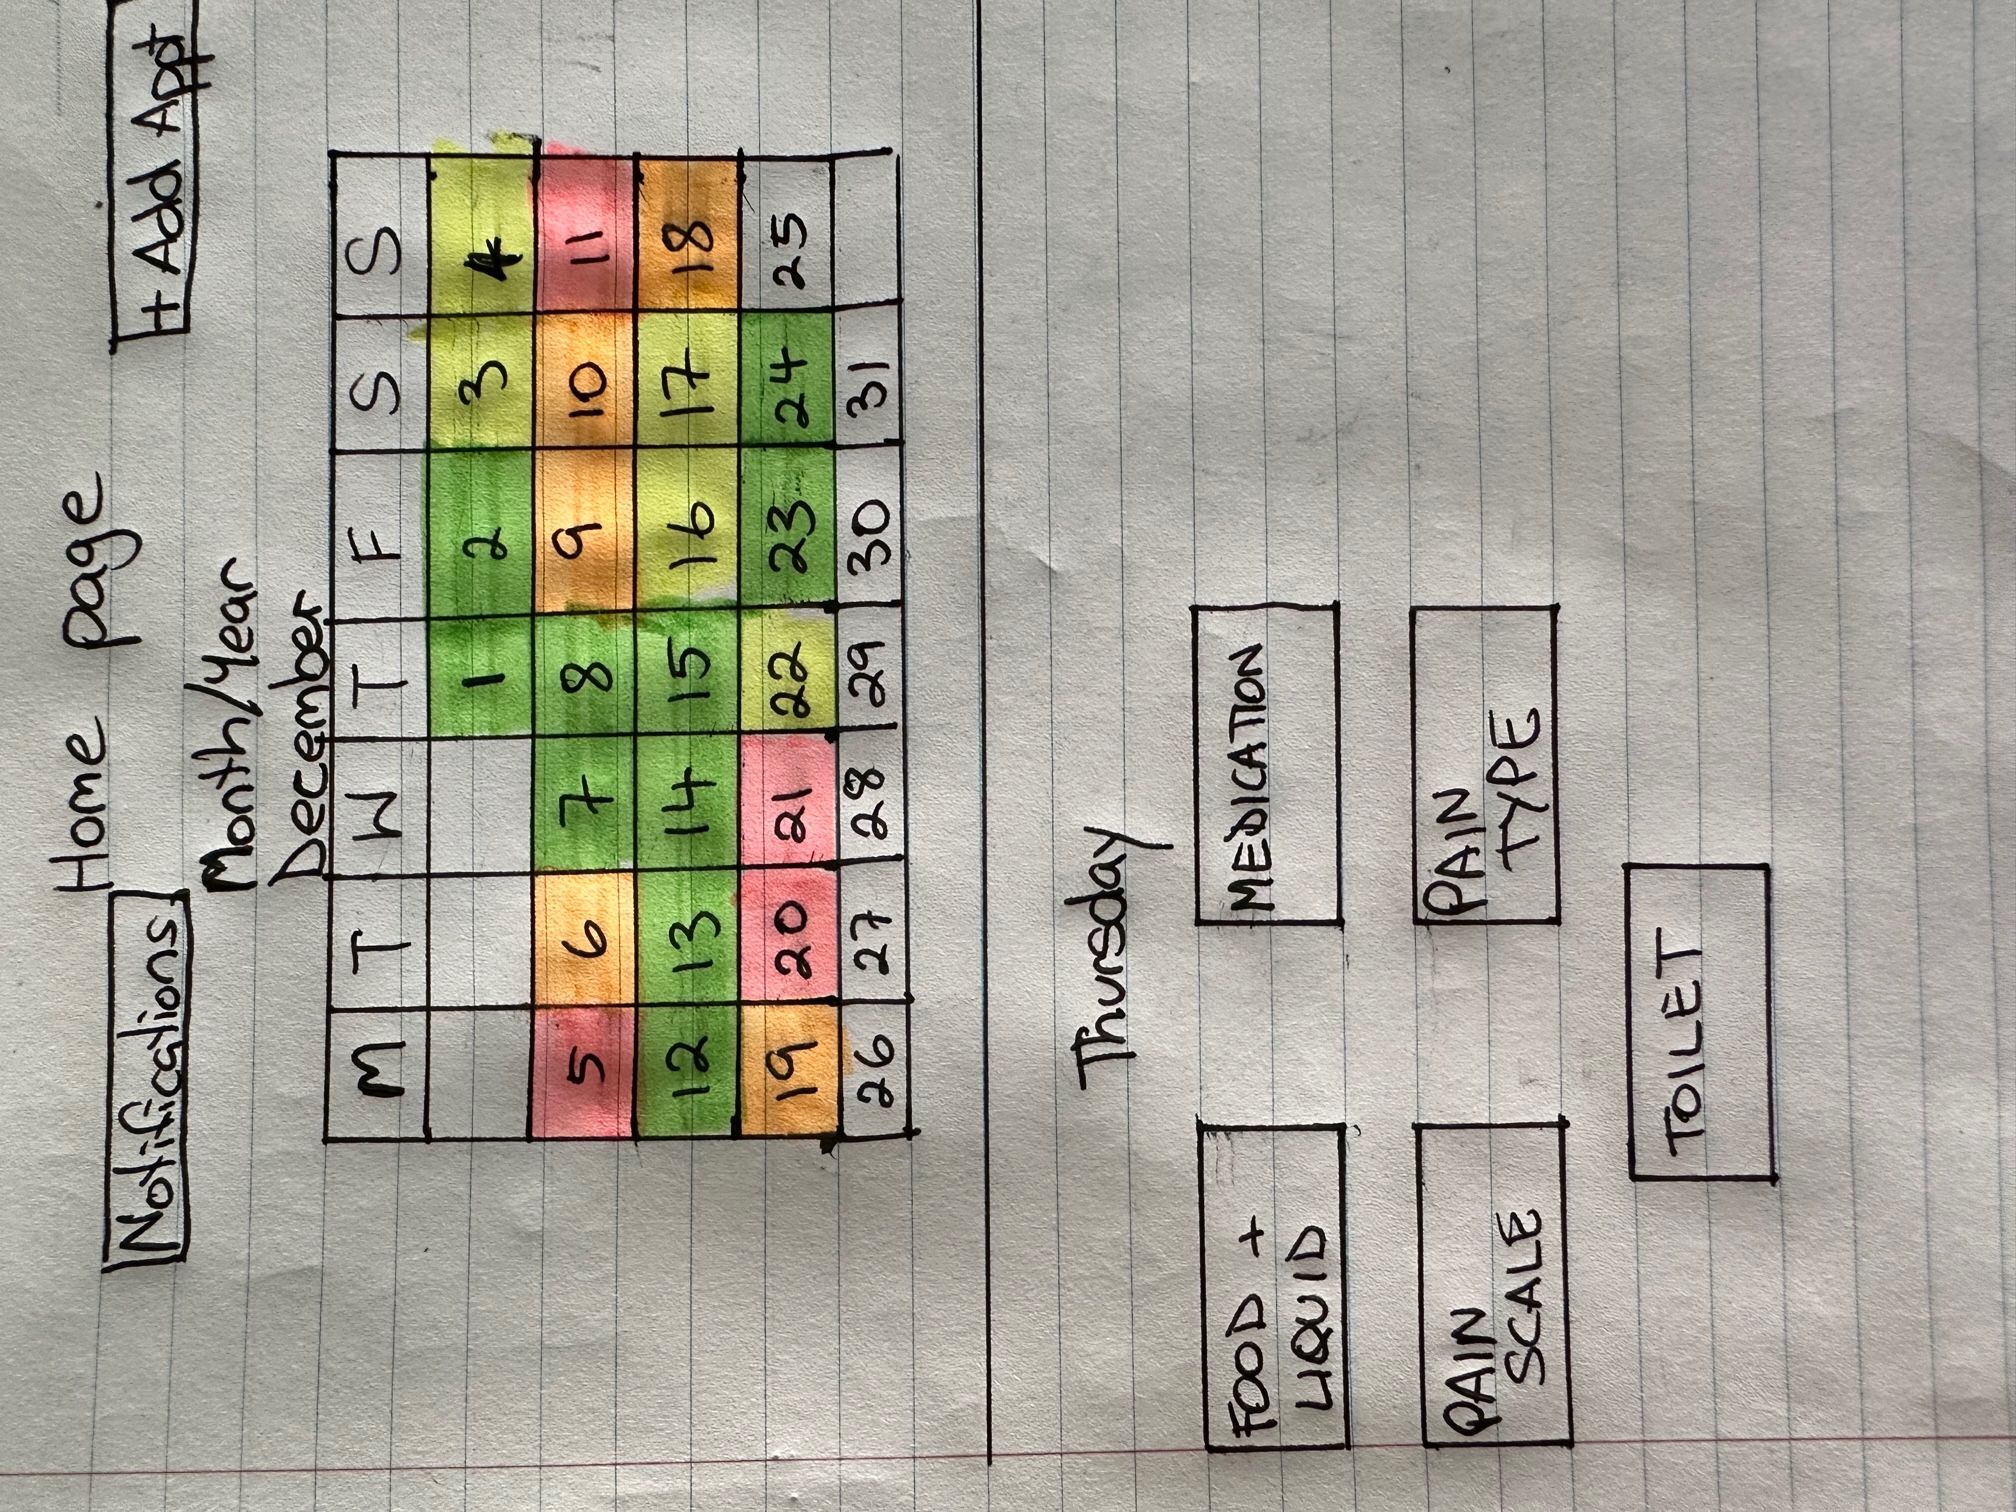 Home page
Notifications
+ Add Appt
Month/Year
December
M T W T F S S
1 2 3 4
5 6 7 8 9 10 11
12 13 14 15 16 17 18
19 20 21 22 23 24 25
26 27 28 29 30 31
Thursday
FOOD +
LIQUID
MEDICATION
PAIN
SCALE
PAIN
TYPE
TOILET